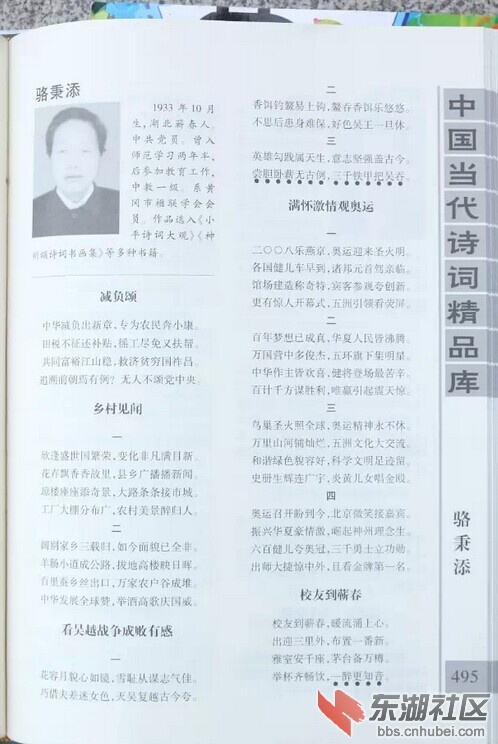 骆秉添
1933年10月
生，湖北蕲春人。
中共党员。曾入
师范学习两年半，
后参加教育工作，
中教一级。系黄
冈市楹联学会会
员。作品选入《小
平诗词大观》《神
明颂诗词书画集》等多种书籍。
减负颂
中华减负出新章，专为农民奔小康。
田税不征还补贴，徭工尽免又扶帮。
共同富裕江山稳，救济贫穷国祚昌。
追溯前朝焉有例？无人不颂党中央。
乡村见闻
一
欣逢盛世国繁荣，变化非凡满目新。
花卉飘香香故里，县乡广播播新闻。
琼楼座座添奇景，大路条条接市城。
工厂大棚分布广，农村美景醉归人。
二
阔别家乡三载归，如今面貌已全非。
羊肠小道成公路，拔地高楼映日晖。
百里蚕乡丝出口，万家农户谷成堆。
中华发展全球赞，举酒高歌庆国威。
看吴越战争成败有感
一
花容月貌心如镜，雪耻从谋志气佳。
巧借夫差迷女色，灭吴复越古今夸。
二
香饵钓鳌易上钩，鳌吞香饵乐悠悠。
不思后患身难保，好色吴王一旦休。
三
英雄勾践属天生，意志坚强盖古今。
尝胆卧薪无古例，三千铁甲把吴吞。
满怀激情观奥运
一
二〇〇八乐燕京，奥运迎来圣火明。
各国健儿车早到，诸邦元首驾亲临。
馆场建造称奇特，宾客参观夸创新。
更有惊人开幕式，五洲引领看荧屏。
二
百年梦想已成真，华夏人民皆沸腾。
万国营中多俊杰，五环旗下集明星。
中华作主皆欢喜，健将登场最苦辛。
百计千方谋胜利，唯赢引起震天惊。
三
鸟巢圣火照全球，奥运精神永不休。
万里山河铺灿烂，五洲文化大交流。
和谐绿色貌容好，科学文明足迹留。
史册生辉连广宇，炎黄儿女唱金瓯。
四
奥运召开盼到今，北京微笑接嘉宾。
振兴华夏豪情激，崛起神州理念生。
六百健儿夸奥冠，三千勇士立功勋。
出师大捷惊中外，且看金牌第一名。
校友到蕲春
校友到蕲春，暖流涌上心。
出迎三里外，布置一番新。
雅室安千座，茅台备万樽。
举杯齐畅饮，一醉更知音。
中国当代诗词精品库
骆秉添
495
东湖社区
bbs.cnhubei.com